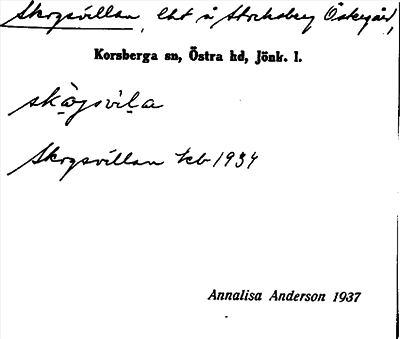 Skogsvillan, lht å Stocksberg Östergård,
Korsberga sn, Östra hd, Jönk. l.
skògsvila
Skogsvillan kb 1934
Annalisa Anderson 1937